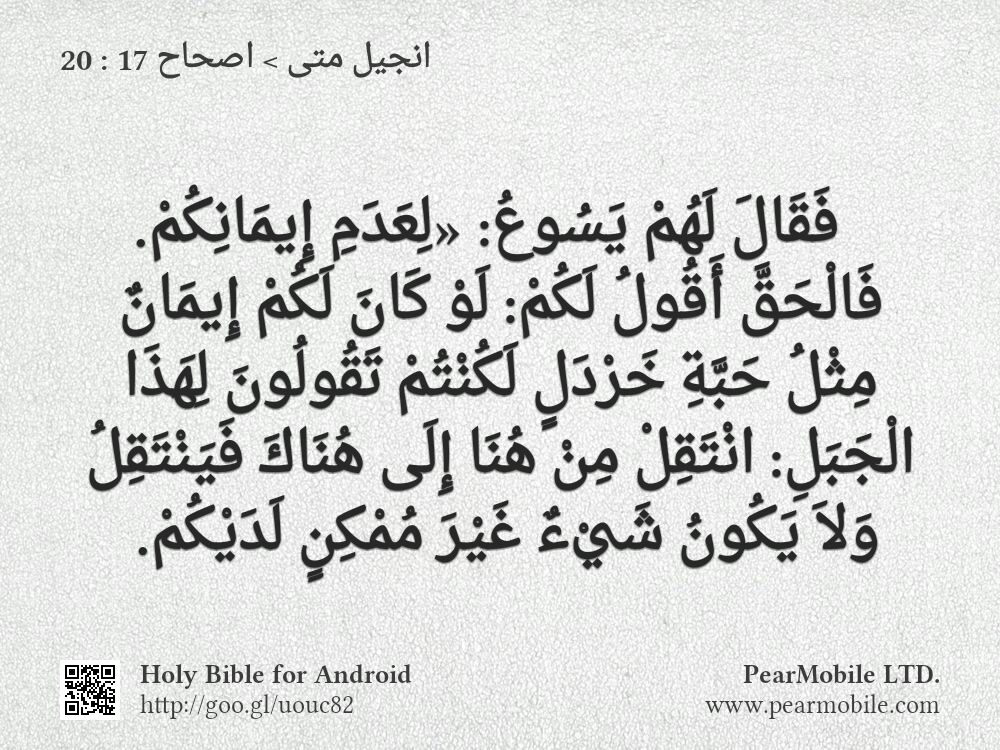 انجيل متى > اصحاح 17 : 20
فَقَالَ لَهُمْ يَسُوعُ: «لِعَدَمِ إِيمَانِكُمْ.
فَالْحَقَّ أَقُولُ لَكُمْ: لَوْ كَانَ لَكُمْ إِيمَانٌ
مِثْلُ حَبَّةِ خَرْدَلٍ لَكُنْتُمْ تَقُولُونَ لِهَذَا
الْجَبَلِ: انْتَقِلْ مِنْ هُنَا إِلَى هُنَاكَ فَيَنْتَقِلُ
وَلاَ يَكُونُ شَيْءٌ غَيْرَ مُمْكِنٍ لَدَيْكُمْ.
Holy Bible for Android
http://goo.gl/uouc82
PearMobile LTD.
www.pearmobile.com